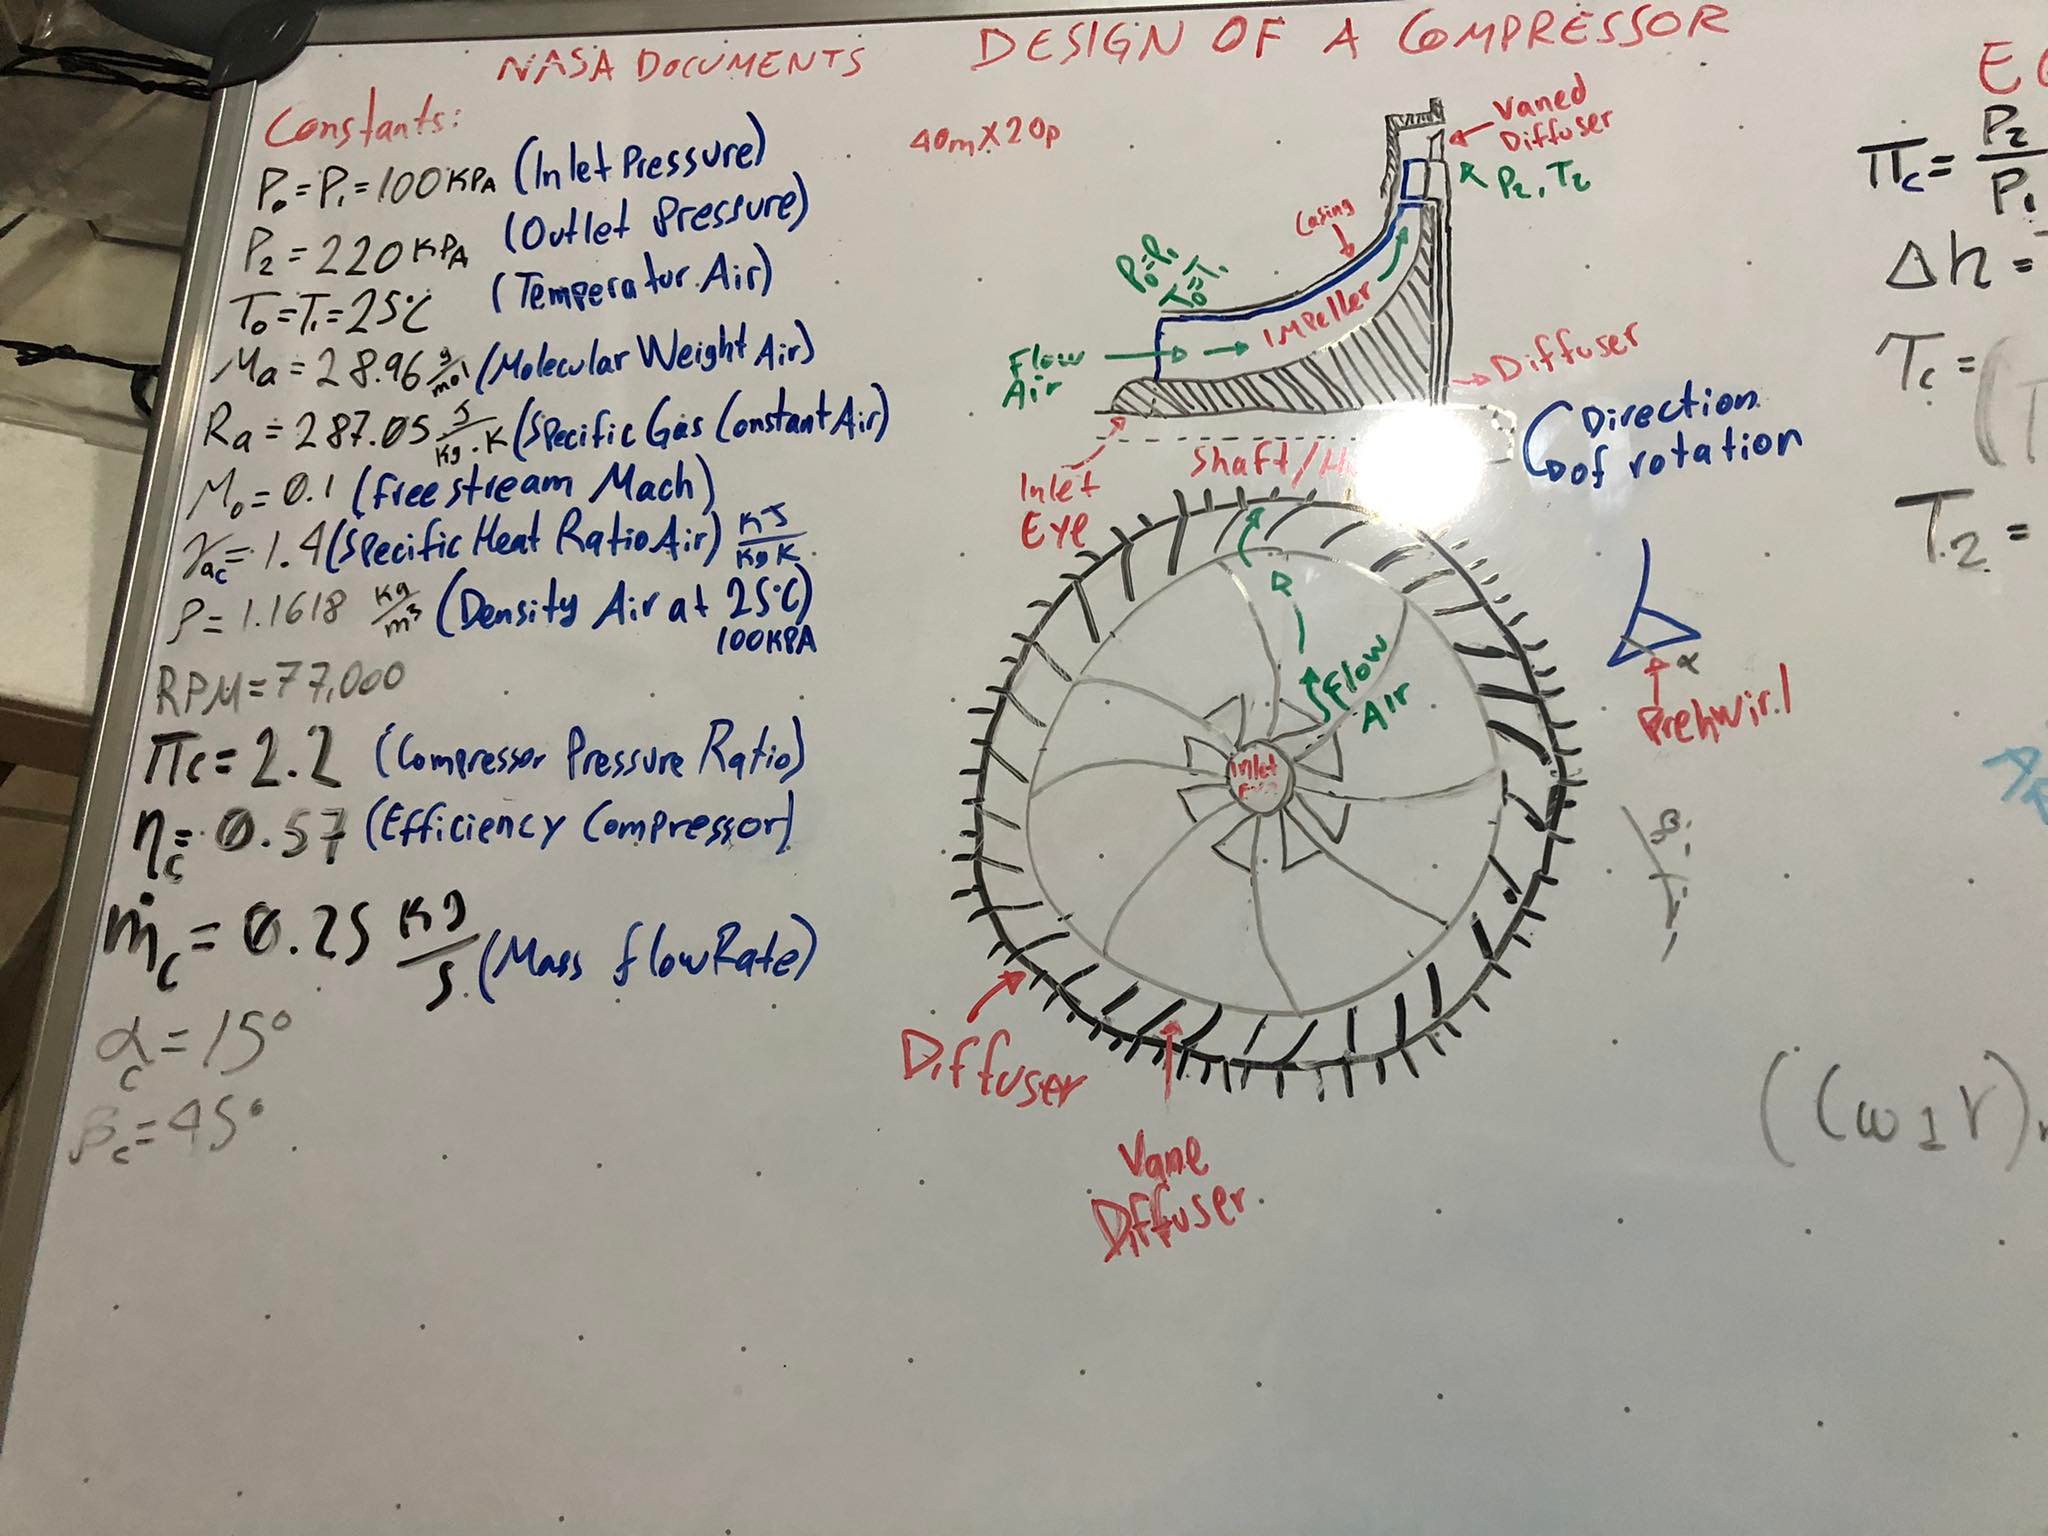 NASA DOCUMENTS
DESIGN OF A COMPRESSOR
Constants:
P₀ = P₁ = 100 KPA (Inlet Pressure)
P₂ = 220 KPA (Outlet Pressure)
T₀ = T₁ = 25°C (Temperatur Air)
Ma = 28.96 g/mol (Molecular Weight Air)
Ra = 287.05 J/Kg·K (Specific Gas Constant Air)
M₀ = 0.1 (free stream Mach)
γac = 1.4 (Specific Heat Ratio Air) KJ/KgK
ρ = 1.1618 Kg/m³ (Density Air at 25°C)
100KPA
RPM = 77,000
πc = 2.2 (Compressor Pressure Ratio)
ηc = 0.57 (Efficiency Compressor)
ṁc = 0.25 Kg/s (Mass flow Rate)
αc = 15°
βc = 45°
40m X 20p
Vaned
Diffuser
P₂, T₂
Casing
P₀=P₁
T₀=T₁
Impeller
Flow
Air
Diffuser
Direction
of rotation
Shaft/
Inlet
Eye
Flow
Air
Inlet
α
Prehwirl
β
Diffuser
Vane
Diffuser
πc = P₂/P₁
Δh =
Tc =
T₂ =
((ω₁r)